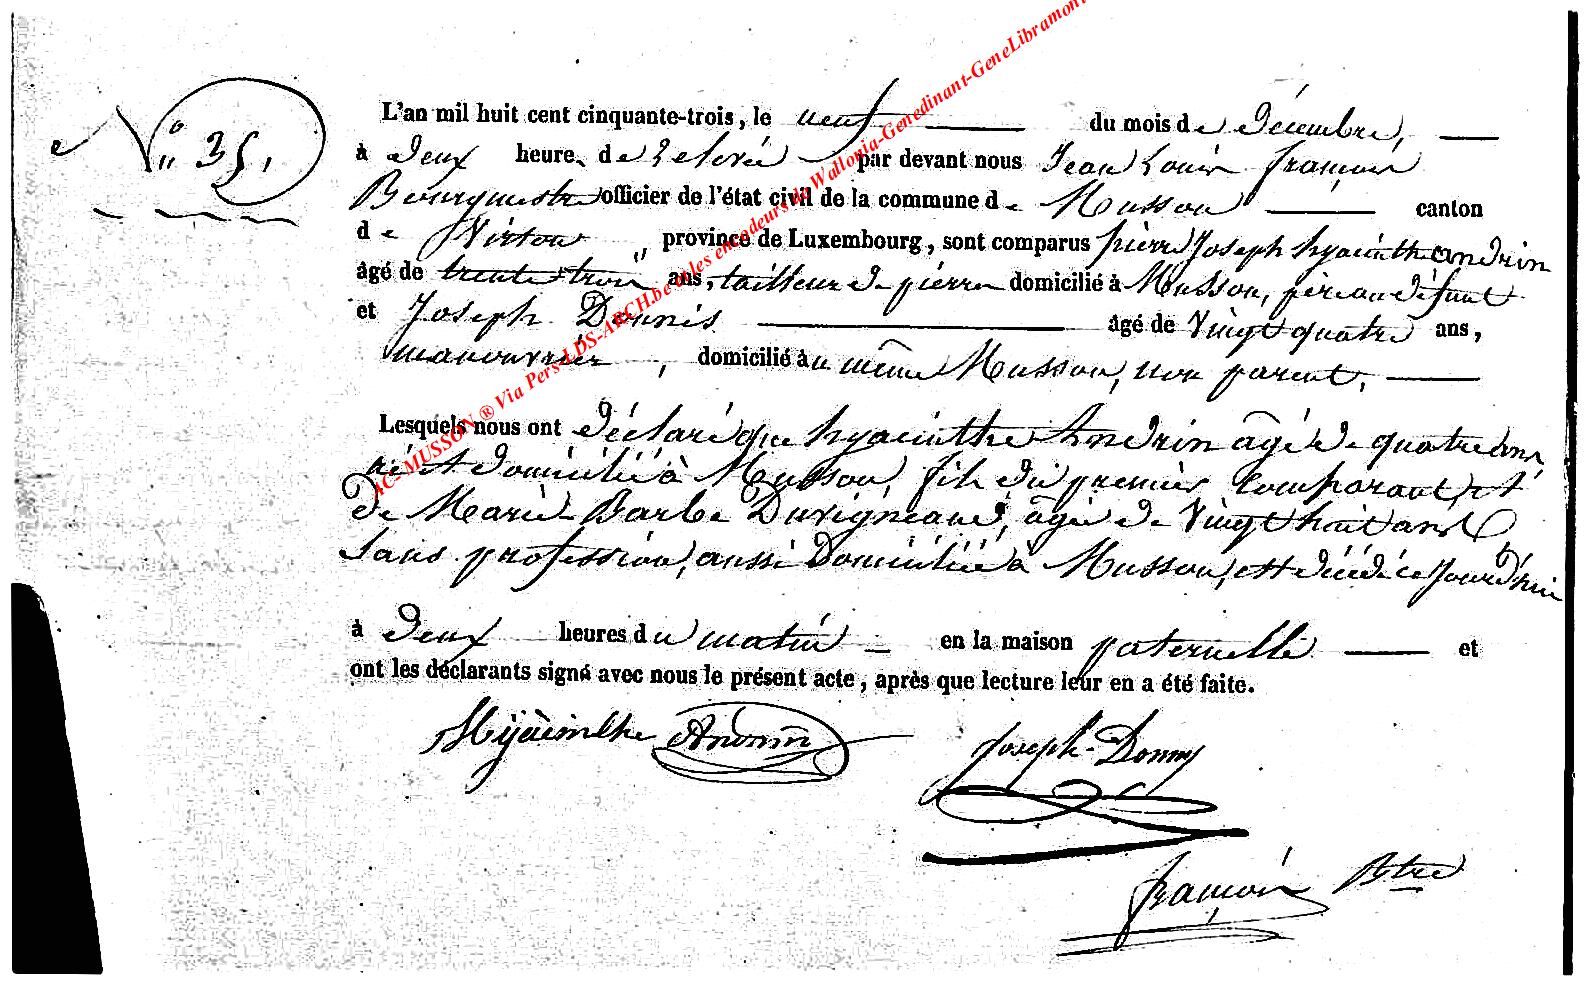 N° 35.
L'an mil huit cent cinquante-trois, le neuf du mois de décembre,
à deux heure, de relevée par devant nous Jean Louis françois
Bourgmestre officier de l'état civil de la commune de Musson canton
de Virton, province de Luxembourg, sont comparus pierre Joseph hyacinthe andrin
âgé de trente trois ans, tailleur de pierre domicilié à Musson, père au défunt
et Joseph Donnis âgé de vingt quatre ans,
manouvrier, domicilié au même Musson, non parent,
Lesquels nous ont déclaré que hyacinthe Andrin âgé de quatre ans,
né et domicilié à Musson, fils du premier comparant, et
de Marie Barbe Duvigneaud, âgée de vingt huit ans
sans profession, aussi domiciliée à Musson, est décédé ce jourd'hui
à deux heures du matin en la maison paternelle et
ont les déclarants signé avec nous le présent acte, après que lecture leur en a été faite.
Hyacinthe Andrin
Joseph Donny
françois Btre
AC-MUSSON ® Via Pers-LDS-ARCH.be et les encodeurs de Wallonia-Genedinant-GeneLibramont